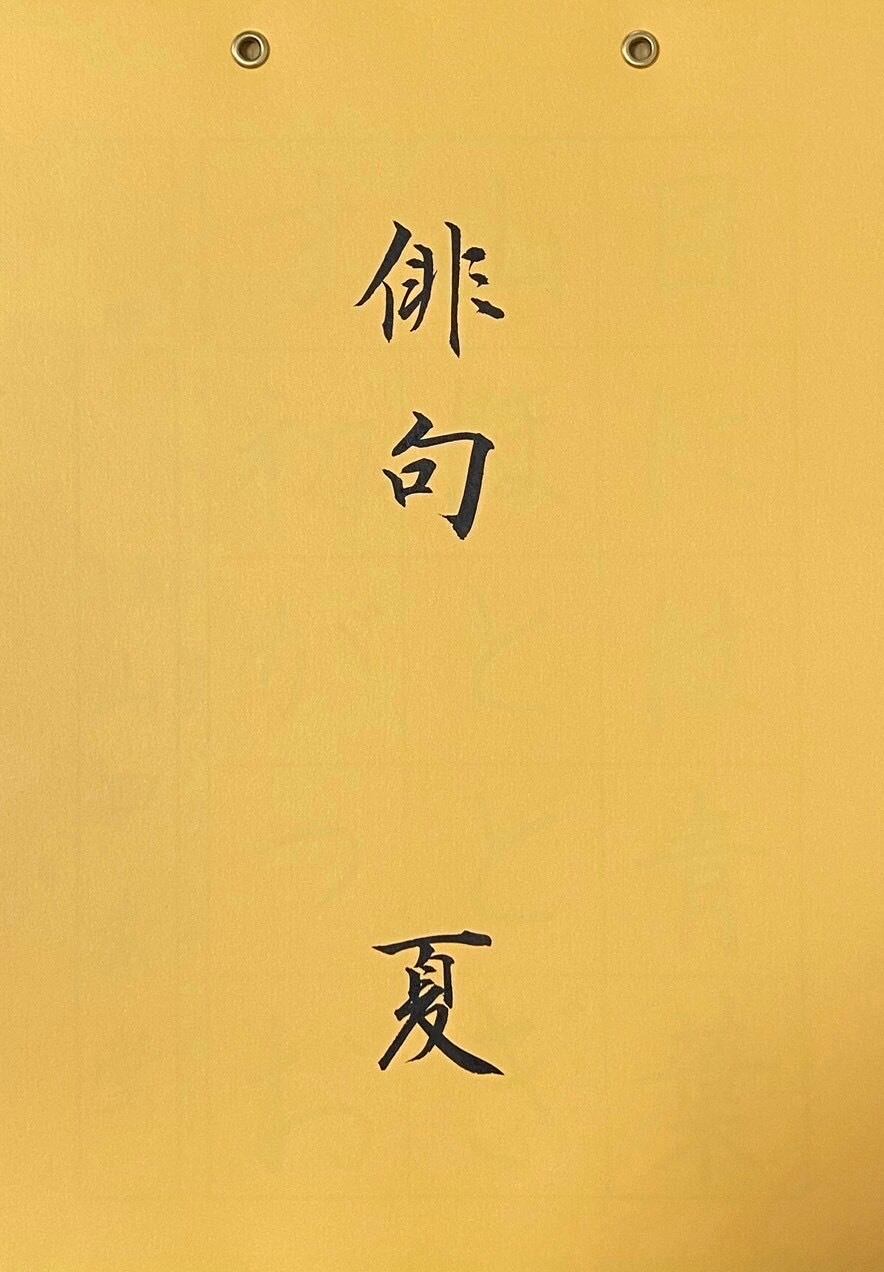 俳句 夏